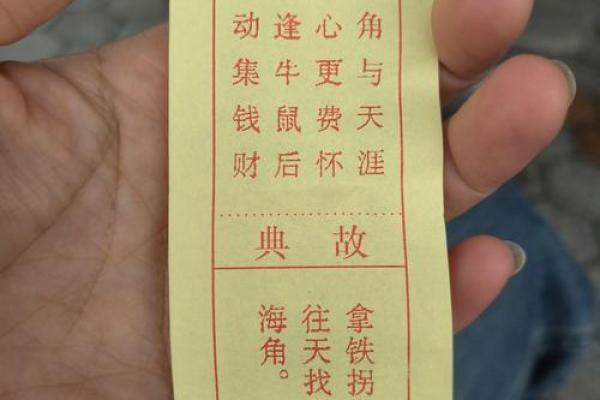 角与天涯
心更费怀
逢牛鼠后
动集钱财
故典
拿铁拐
往天找
海角。